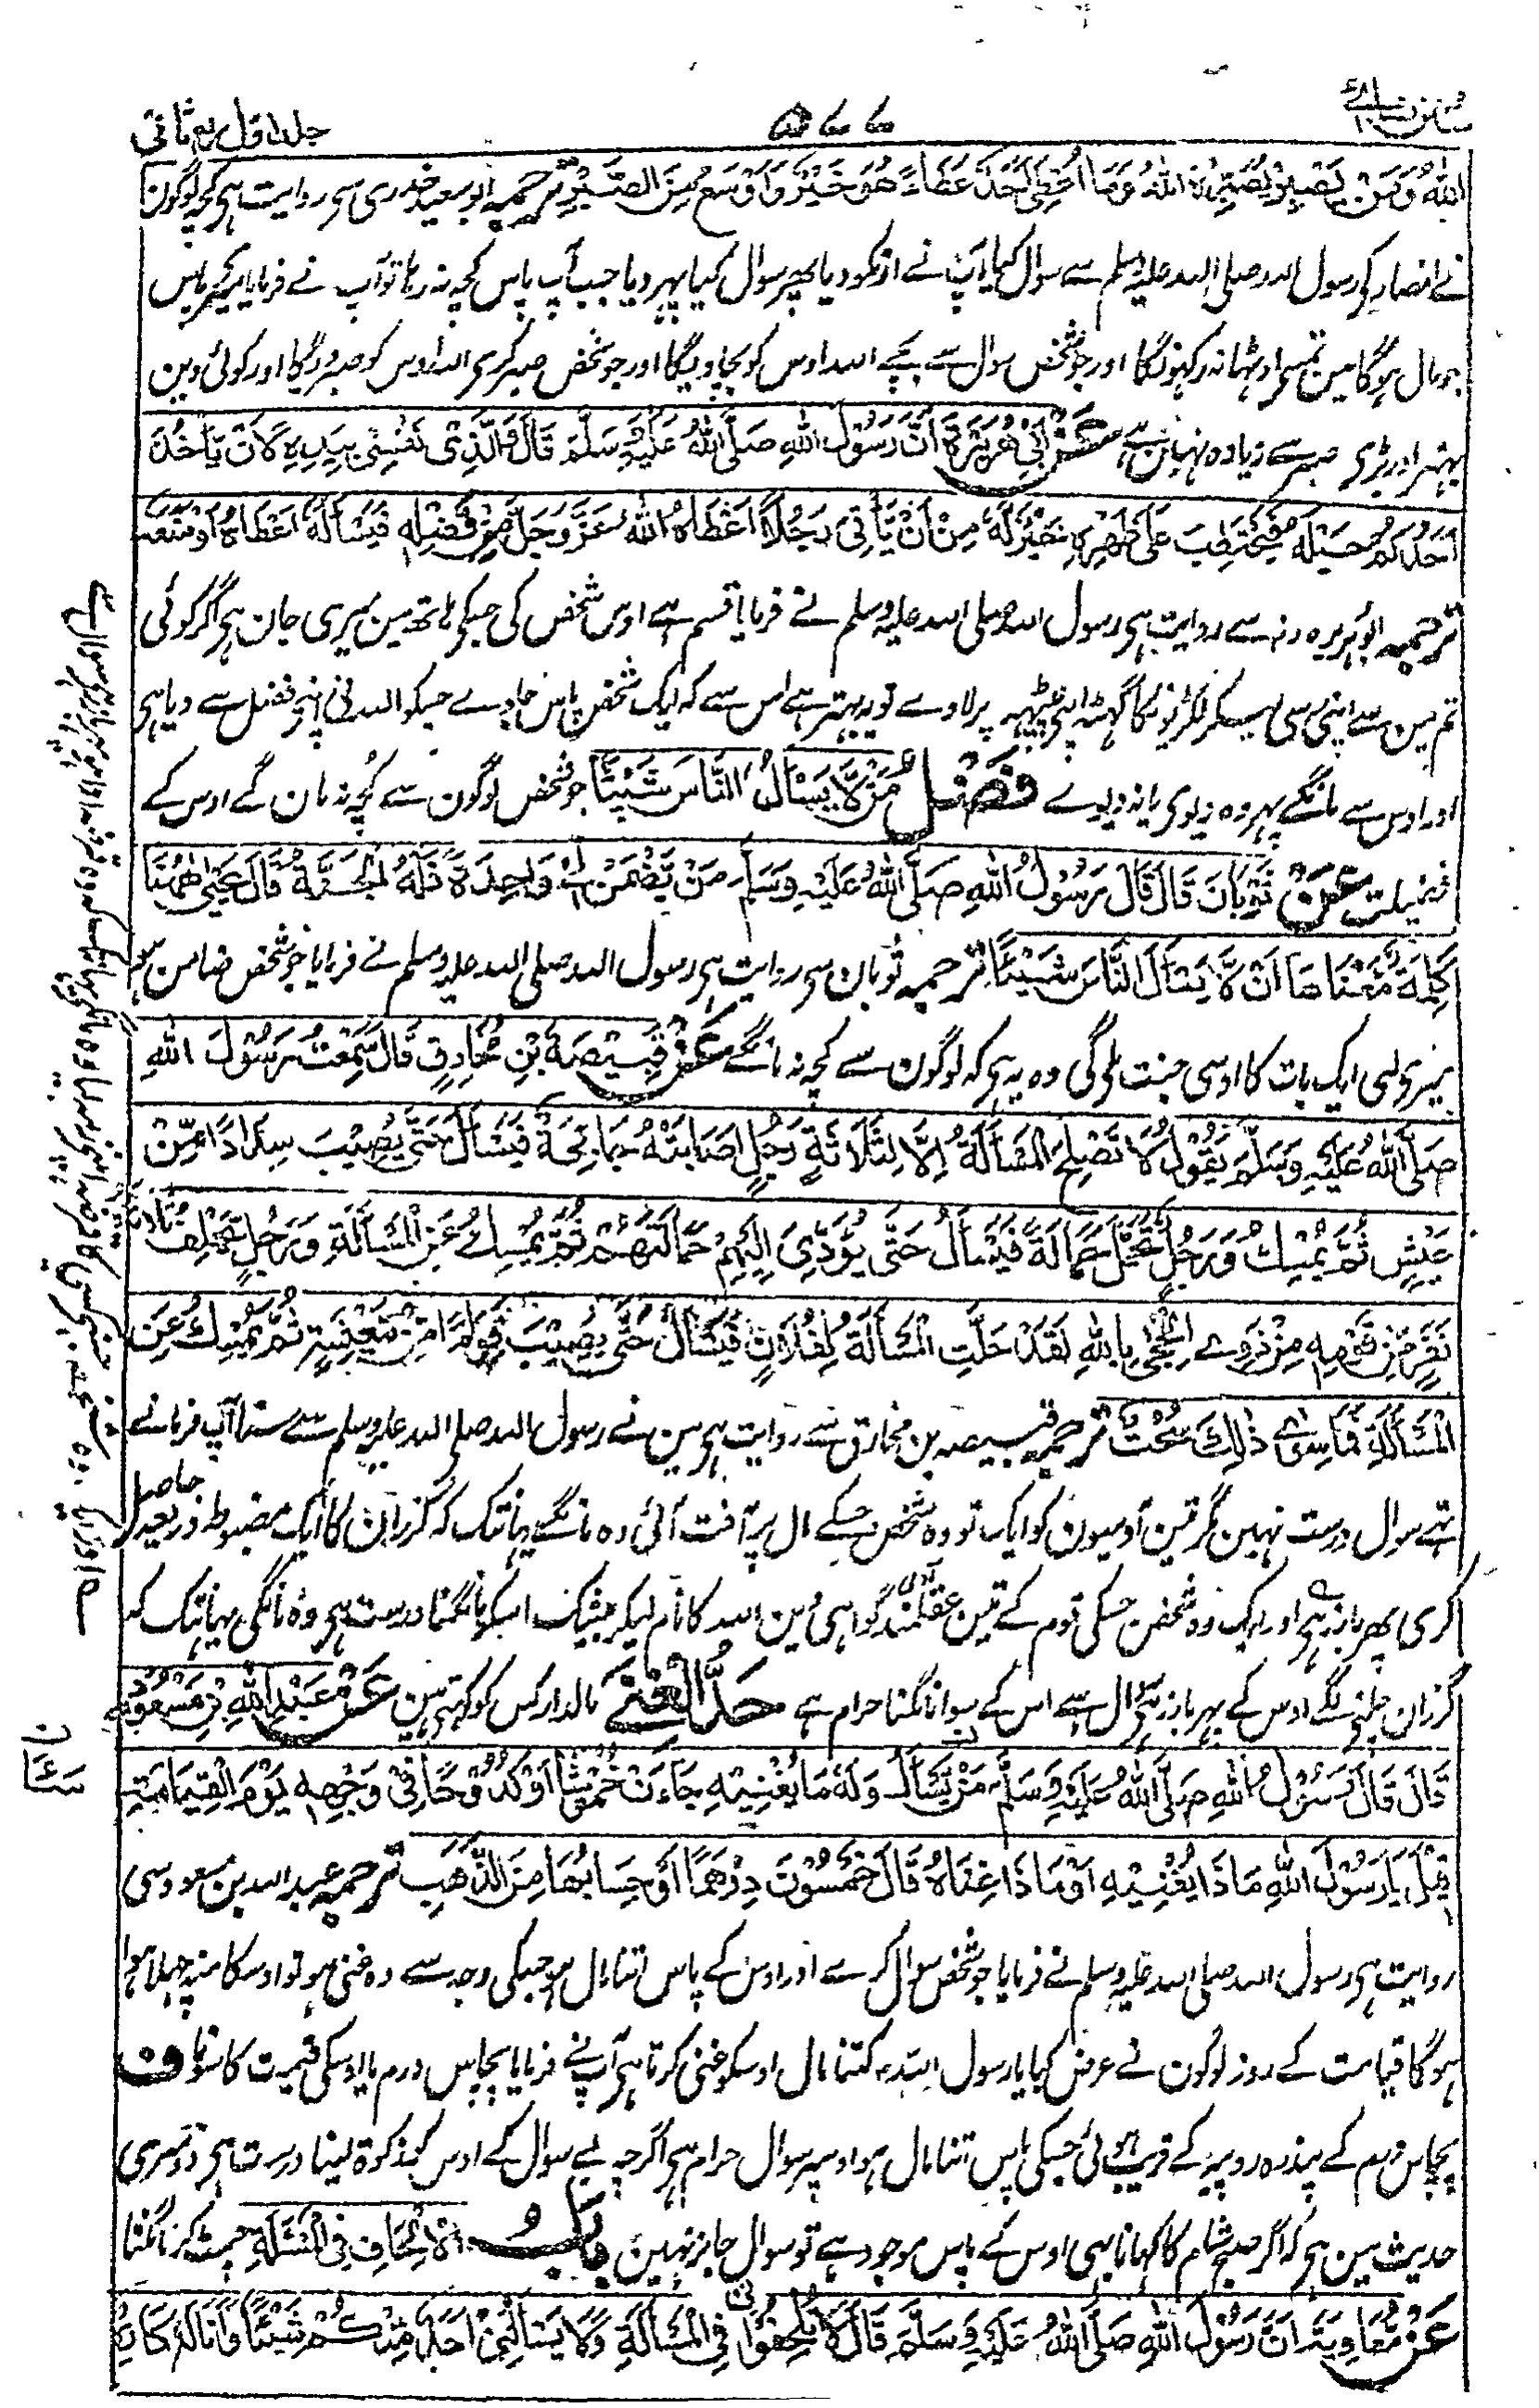 سنن نسائی
۵۷۷
جلد اول ربع ثانی
اللهُ وَمَنْ يَصْبِرْ يُصَبِّرْهُ اللهُ وَمَا أُعْطِيَ أَحَدٌ عَطَاءً هُوَ خَيْرٌ وَأَوْسَعُ مِنَ الصَّبْرِ ترجمہ ابو سعید خدری سے روایت ہے کچھ لوگون
نے انصار کے رسول اللہ صلی اللہ علیہ وسلم سے سوال کیا آپ نے انکو دیا پھر سوال کیا پہر دیا جب آپ پاس کچھ نہ رہا تو آپ نے فرمایا میرے پاس
جو مال ہوگا مین تمسے اوٹہا نہ رکہونگا اور جو شخص سوال سے بچے اللہ اوس کو بچاویگا اور جو شخص صبر کری اللہ اوس کو صبر دیگا اور کوئی دین
بہتر اور بڑی صبر سے زیادہ نہیں ہے عَنْ أَبِي هُرَيْرَةَ أَنَّ رَسُولَ اللهِ صَلَّى اللهُ عَلَيْهِ وَسَلَّمَ قَالَ وَالَّذِي نَفْسِي بِيَدِهِ لَأَنْ يَأْخُذَ
أَحَدُكُمْ حَبْلَهُ فَيَحْتَطِبَ عَلَى ظَهْرِهِ خَيْرٌ لَهُ مِنْ أَنْ يَأْتِيَ رَجُلًا أَعْطَاهُ اللهُ عَزَّ وَجَلَّ مِنْ فَضْلِهِ فَيَسْأَلَهُ أَعْطَاهُ أَوْ مَنَعَهُ
ترجمہ ابو ہریرہ رضہ سے روایت ہے رسول اللہ صلی اللہ علیہ وسلم نے فرمایا قسم ہے اوس شخص کی جسکے ہاتھ مین میری جان ہے اگر کوئی
تم مین سے اپنی رسی لیکر لکڑیونکا گٹھہ اپنی پیٹہہ پر لاوے تو یہ بہتر ہے اس سے کہ ایک شخص پاس جاوے جسکو اللہ نی اپنے فضل سے دیا ہے
اور اوس سے مانگے پہر وہ دیوی یا نہ دیوے فَضْلُ مَنْ لَا يَسْأَلُ النَّاسَ شَيْئًا جو شخص لوگون سے کچھ نہ مان گے اوس کے
فضیلت عَنْ ثَوْبَانَ قَالَ قَالَ رَسُولُ اللهِ صَلَّى اللهُ عَلَيْهِ وَسَلَّمَ مَنْ يَضْمَنُ لِي وَاحِدَةً فَلَهُ الْجَنَّةُ قَالَ يَحْيَى هٰهُنَا
كَلِمَةً مَعْنَاهَا أَنْ لَا يَسْأَلَ النَّاسَ شَيْئًا ترجمہ ثوبان سے روایت ہے رسول اللہ صلی اللہ علیہ وسلم نے فرمایا جو شخص ضامن ہو
میری لیی ایک بات کا اوسی جنت ملے گی وہ یہ ہے کہ لوگون سے کچھ نہ مانگے عَنْ قَبِيصَةَ بْنِ مُخَارِقٍ قَالَ سَمِعْتُ رَسُولَ اللهِ
صَلَّى اللهُ عَلَيْهِ وَسَلَّمَ يَقُولُ لَا تَصْلُحُ الْمَسْأَلَةُ إِلَّا لِثَلَاثَةٍ رَجُلٍ أَصَابَتْ مَالَهُ جَائِحَةٌ فَيَسْأَلُ حَتَّى يُصِيبَ سِدَادًا مِنْ
عَيْشٍ ثُمَّ يُمْسِكُ وَرَجُلٍ تَحَمَّلَ حَمَالَةً فَيَسْأَلُ حَتَّى يُؤَدِّيَ إِلَيْهِمْ حَمَالَتَهُمْ ثُمَّ يُمْسِكُ عَنِ الْمَسْأَلَةِ وَرَجُلٍ يَحْلِفُ ثَلَاثَةُ
نَفَرٍ مِنْ قَوْمِهِ مِنْ ذَوِي الْحِجَى بِاللهِ لَقَدْ حَلَّتِ الْمَسْأَلَةُ لِفُلَانٍ فَيَسْأَلُ حَتَّى يُصِيبَ قِوَامًا مِنْ مَعِيشَةٍ ثُمَّ يُمْسِكُ عَنِ
الْمَسْأَلَةِ فَمَا سِوَى ذَلِكَ سُحْتٌ ترجمہ قبیصہ بن مخارق سے روایت ہے مین نے رسول اللہ صلی اللہ علیہ وسلم سے سنا آپ فرماتے
تہے سوال درست نہین مگر تین آدمیون کو ایک تو وہ شخص جسکے مال پر آفت آئی وہ مانگے یہانتک کہ گزران کا ایک مضبوط ذریعہ حاصل
کری پھر باز رہے اور ایک وہ شخص جسکی قوم کے تین عقلمند آدمی گواہی دین اللہ کا نام لیکر بیشک اسکو مانگنا درست ہے وہ مانگی یہانتک کہ
گزران چلنے لگے اوس کے پہر باز رہے سوال سے اس کے سوا مانگنا حرام ہے حَدُّ الْغِنٰى مالدار کس کو کہتے ہین عَنْ عَبْدِ اللهِ بْنِ مَسْعُودٍ
قَالَ قَالَ رَسُولُ اللهِ صَلَّى اللهُ عَلَيْهِ وَسَلَّمَ مَنْ يَسْأَلُ وَلَهُ مَا يُغْنِيهِ جَاءَتْ خُمُوشًا أَوْ كُدُوحًا فِي وَجْهِهِ يَوْمَ الْقِيَامَةِ
قِيلَ يَا رَسُولَ اللهِ مَاذَا يُغْنِيهِ أَوْ مَاذَا غِنَاهُ قَالَ خَمْسُونَ دِرْهَمًا أَوْ حِسَابُهَا مِنَ الذَّهَبِ ترجمہ عبد اللہ بن مسعود سی
روایت ہے رسول اللہ صلی اللہ علیہ وسلم نے فرمایا جو شخص سوال کرے اور اوس کے پاس اتنا مال ہو جسکی وجہ سے وہ غنی ہو تو اوسکا منہ چہلا ہوا
ہوگا قیامت کے روز لوگون نے عرض کیا یا رسول اللہ کتنا مال اوسکو غنی کرتا ہے آپ نے فرمایا پچاس درم یا اوسکی قیمت کا سونا ف
پچاس درم کے پندرہ روپیہ کے قریب ہوئی جسکی پاس اتنا مال ہو اوسپر سوال حرام ہے اگرچہ بے سوال کے اوس کو زکوۃ لینا درست ہے دوسری
حدیث مین ہے کہ اگر صبح شام کا کہانا بہی اوس کے پاس موجود ہے تو سوال جائز نہین بَابُ الْإِلْحَافِ فِي الْمَسْئَلَةِ چمٹ کر مانگنا
عَنْ مُعَاوِيَةَ أَنَّ رَسُولَ اللهِ صَلَّى اللهُ عَلَيْهِ وَسَلَّمَ قَالَ لَا تُلْحِفُوا فِي الْمَسْأَلَةِ وَلَا يَسْأَلُنِي أَحَدٌ مِنْكُمْ شَيْئًا وَأَنَا لَهُ كَارِهٌ